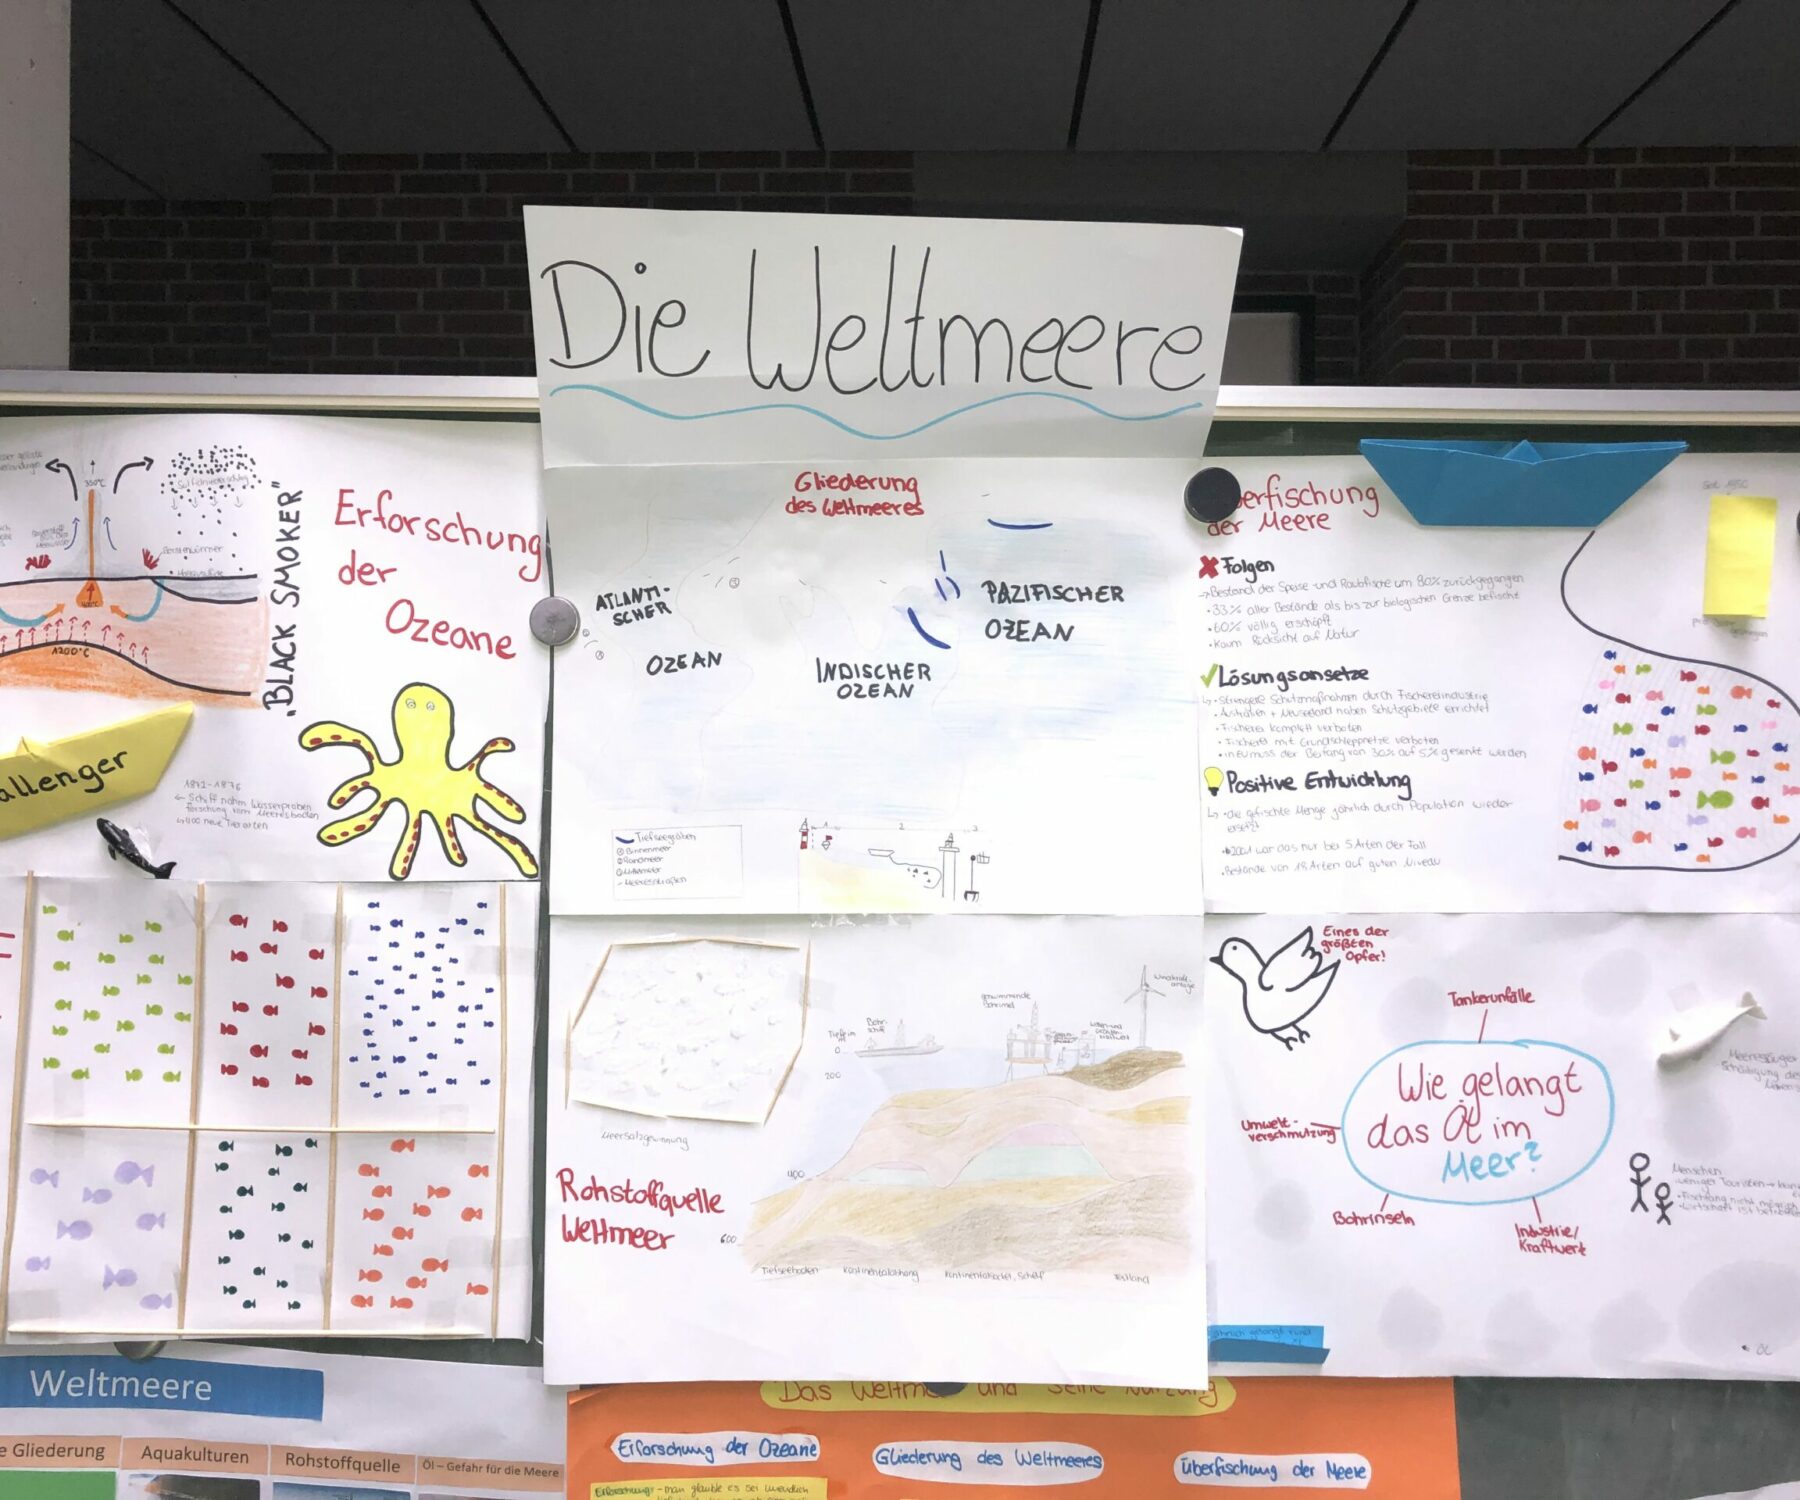 Die Weltmeere
350°C
400°C
1200°C
„BLACK SMOKER"
Erforschung
der
Ozeane
allenger
1872-1876
← Schiff nahm Wasserproben
400 neue Tierarten
Gliederung
des Weltmeeres
ATLANTI-
SCHER
OZEAN
INDISCHER
OZEAN
PAZIFISCHER
OZEAN
Tiefseegräben
Binnenmeer
Randmeer
Mittelmeer
Meeresstraßen
1 2 3
erfischung
der Meere
Folgen
→ Bestand der Speise- und Raubfische um 80% zurückgegangen
• 33% aller Bestände als bis zur biologischen Grenze befischt
• 60% völlig erschöpft
• Kaum Rücksicht auf Natur
Lösungsansetze
↳ • Strengere Schutzmaßnahmen durch Fischereiindustrie
• Australien + Neuseeland haben Schutzgebiete errichtet
• Fischerei komplett verboten
• Fischerei mit Grundschleppnetze verboten
• in EU muss der Beifang von 30% auf 5% gesenkt werden
Positive Entwicklung
↳ • die gefischte Menge jährlich durch Population wieder
ersetzt
• 2001 war das nur bei 5 Arten der Fall
• Bestände von 18 Arten auf guten Niveau
Seit 1950
Meersalzgewinnung
Rohstoffquelle
Weltmeer
Tiefe in
m
0
200
400
600
Bohr-
schiff
Windkraft-
anlage
Tiefseeboden
Kontinentalabhang
Kontinentalsockel, Schelf
Festland
Eines der
größten
Opfer!
Tankerunfälle
Wie gelangt
das Öl im
Meer?
Umwelt-
verschmutzung
Bohrinseln
Industrie/
Kraftwerk
Meeressäuger
Menschen
weniger Touristen →
• Fischfang nicht möglich
• Wirtschaft ist
• ÖL
Weltmeere
e Gliederung
Aquakulturen
Rohstoffquelle
Öl – Gefahr für die Meere
Das Weltme und seine Nutzung
Erforschung der Ozeane
Gliederung des Weltmeeres
Überfischung der Meere
Erforschung: - man glaubte es sei unendlich